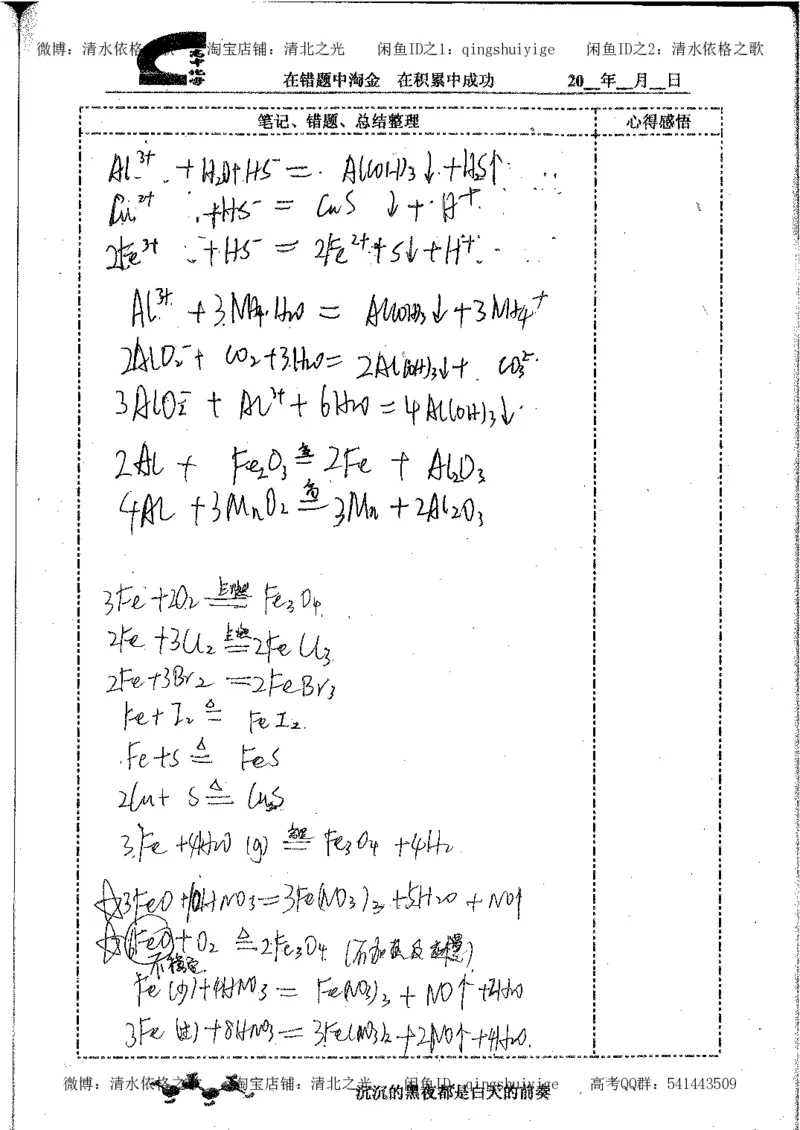 微博：清水依格之歌 淘宝店铺：清北之光 闲鱼ID之1：qingshuiyige 闲鱼ID之2：清水依格之歌
在错题中淘金 在积累中成功 20__年__月__日
笔记、错题、总结整理 心得感悟
Al³⁺ + H₂O + HS⁻ = Al(OH)₃↓ + H₂S↑
Cu²⁺ + HS⁻ = CuS ↓ + H⁺
2Fe³⁺ + HS⁻ = 2Fe²⁺ + S↓ + H⁺
Al³⁺ + 3NH₃·H₂O = Al(OH)₃↓ + 3NH₄⁺
2AlO₂⁻ + CO₂ + 3H₂O = 2Al(OH)₃↓ + CO₃²⁻
3AlO₂⁻ + Al³⁺ + 6H₂O = 4Al(OH)₃↓
2Al + Fe₂O₃ 高 = 2Fe + Al₂O₃
4Al + 3MnO₂ 高 = 3Mn + 2Al₂O₃
3Fe + 2O₂ 点燃 = Fe₃O₄
2Fe + 3Cl₂ 点燃 = 2FeCl₃
2Fe + 3Br₂ = 2FeBr₃
Fe + I₂ △ = FeI₂
Fe + S △ = FeS
2Cu + S △ = Cu₂S
3Fe + 4H₂O (g) 高温 = Fe₃O₄ + 4H₂
☆3FeO + 10HNO₃ = 3Fe(NO₃)₃ + 5H₂O + NO↑
☆6FeO + O₂ △ = 2Fe₃O₄ (不加热反应慢)
不稳定
Fe (少) + 4HNO₃ = Fe(NO₃)₃ + NO↑ + 2H₂O
3Fe (过) + 8HNO₃ = 3Fe(NO₃)₂ + 2NO↑ + 4H₂O
微博：清水依格之歌 淘宝店铺：清北之光 闲鱼ID：qingshuiyige 高考QQ群：541443509
沉沉的黑夜都是白天的前奏